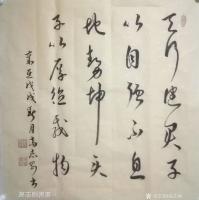 天行健君子
以自强不息
地势坤君
子以厚德载物
岁在戊戌秋月高志刚书